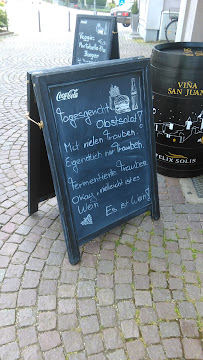 Veggie
Portobello
Burger
Coca-Cola
Tagesgericht
Obstsalat!
Mit vielen Trauben.
Eigentlich nur Trauben.
Fermentierte Trauben.
Okay, vielleicht ist es
Wein
Es ist Wein!
VIÑA
SAN JUAN
FELIX SOLIS